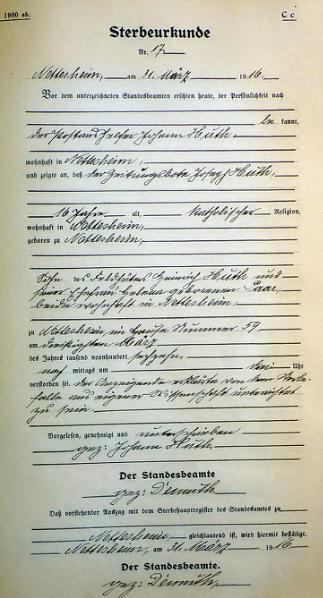 1900 ab.
C c
Sterbeurkunde
Nr. 17
Nettersheim, am 31. März 1916
Vor dem unterzeichneten Standesbeamten erschien heute, der Persönlichkeit nach
be kannt,
der Postaushelfer Johann Huth
wohnhaft in Nettersheim,
und zeigte an, daß der Zeitungsbote Josef Huth,
16 Jahre alt, katholischer Religion,
wohnhaft in Nettersheim,
geboren zu Nettersheim,
Sohn des Feldhüters Heinrich Huth und
seiner Ehefrau Helena geborenen Paar,
beide wohnhaft in Nettersheim
zu Nettersheim im Hause Nummer 59
am dreißigsten März
des Jahres tausend neunhundert sechzehn
nach mittags um drei Uhr
verstorben sei. Der Anzeigende erklärte von dem Sterbe-
falle aus eigener Wissenschaft unterrichtet
zu sein.
Vorgelesen, genehmigt und unterschrieben
gez: Johann Huth
Der Standesbeamte
gez: Demuth
Daß vorstehender Auszug mit dem Sterbehauptregister des Standesamtes zu
Nettersheim gleichlautend ist, wird hiermit bestätigt.
Nettersheim, am 31. März 1916
Der Standesbeamte.
gez: Demuth,